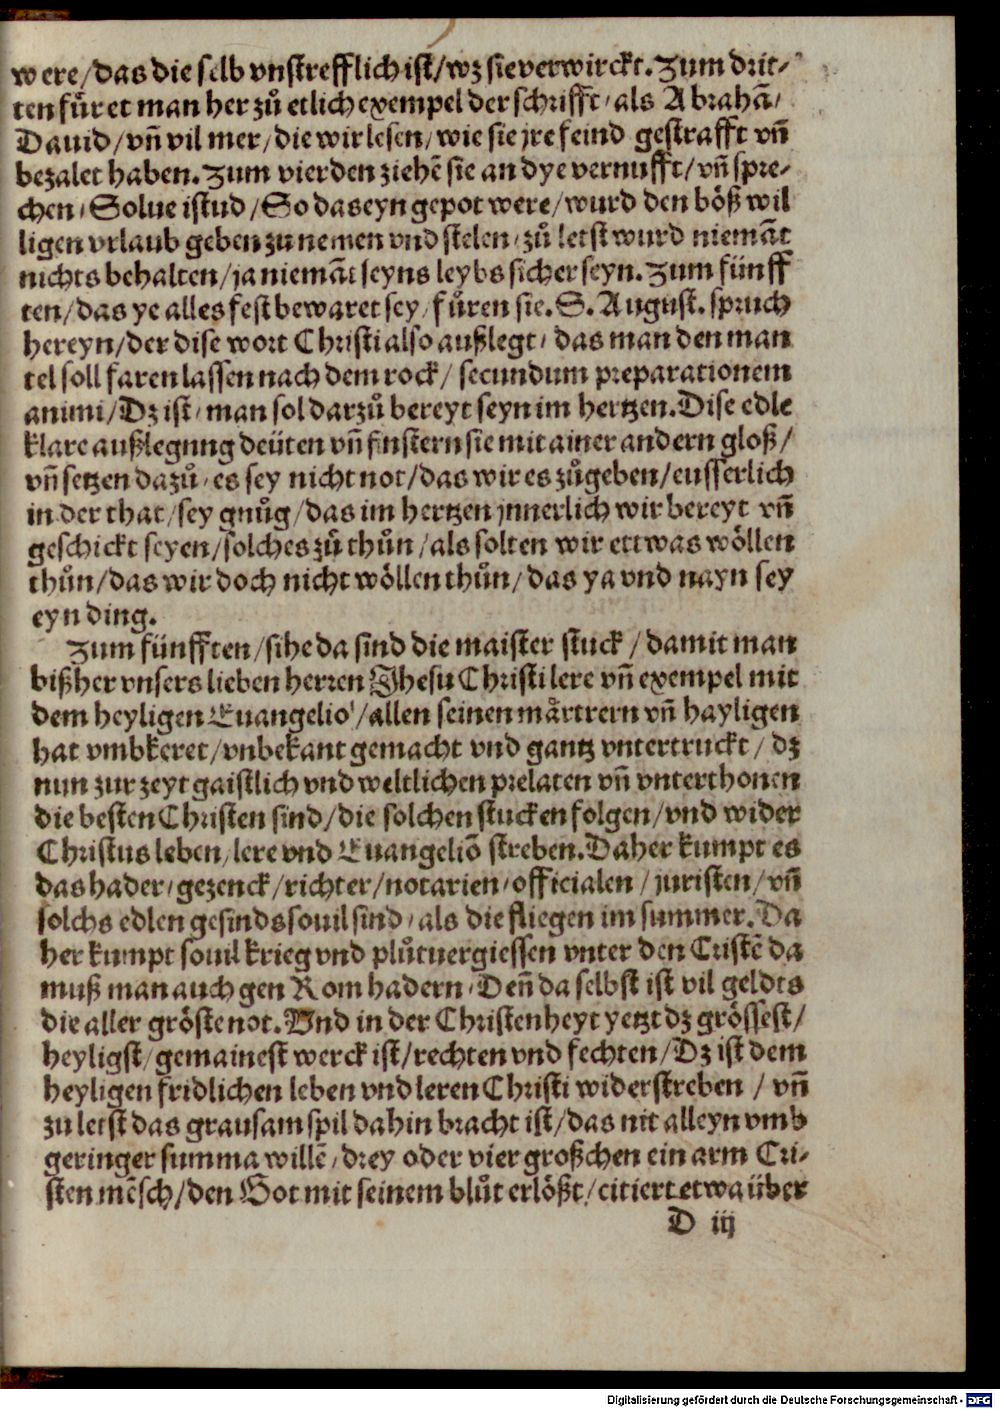 were/das die selb vnstrefflich ist/wz sie verwirckt. Zum drit-
ten fuͤret man her zuͦ etlich exempel der schrifft/als Abrahā/
Dauid/vñ vil mer/die wir lesen/wie sie jre feind gestrafft vñ
bezalet haben. Zum vierden ziehē sie an dye vernufft/vñ spre-
chen/Solue istud/So das eyn gepot were/wurd den böß wil
ligen vrlaub geben zu nemen vnd stelen/zuͦ letst wurd niemāt
nichts behalten/ja niemāt seyns leybs sicher seyn. Zum fünff
ten/das ye alles fest bewaret sey/fuͤren sie. S. August. spruch
hereyn/der dise wort Christi also außlegt/das man den man
tel soll faren lassen nach dem rock/secundum preparationem
animi/Dz ist/man sol darzuͦ bereyt seyn im hertzen. Dise edle
klare außlegung deüten vñ finstern sie mit ainer andern gloß/
vñ setzen dazuͦ/es sey nicht not/das wir es zuͦgeben/eusserlich
in der that/sey gnuͦg/das im hertzen jnnerlich wir bereyt vñ
geschickt seyen/solches zuͦ thuͦn/als solten wir ettwas wöllen
thuͦn/das wir doch nicht wöllen thuͦn/das ya vnd nayn sey
eyn ding.
Zum fünfften/sihe da sind die maister stuck/damit man
bißher vnsers lieben herren Jhesu Christi lere vñ exempel mit
dem heyligen Euangelio/allen seinen maͤrtrern vñ hayligen
hat vmbkeret/vnbekant gemacht vnd gantz vntertruckt/dz
nun zur zeyt gaistlich vnd weltlichen prelaten vñ vnterthonen
die besten Christen sind/die solchen stucken folgen/vnd wider
Christus leben/lere vnd Euangeliō streben. Daher kumpt es
das hader/gezenck/richter/notarien/officialen/juristen/vñ
solchs edlen gesinds souil sind/als die fliegen im summer. Da
her kumpt souil krieg vnd pluͦtuergiessen vnter den Cristē da
muß man auch gen Rom hadern/Deñ da selbst ist vil geldts
die aller gröste not. Vnd in der Christenheyt yetzt dz grössest/
heyligst/gemainest werck ist/rechten vnd fechten/Dz ist dem
heyligen fridlichen leben vnd leren Christi widerstreben/vñ
zu letst das grausam spil dahin bracht ist/das nit alleyn vmb
geringer summa willē/drey oder vier großchen ein arm Cri-
sten mēsch/den Got mit seinem bluͦt erlößt/citiert etwa über
D iij
Digitalisierung gefördert durch die Deutsche Forschungsgemeinschaft - DFG